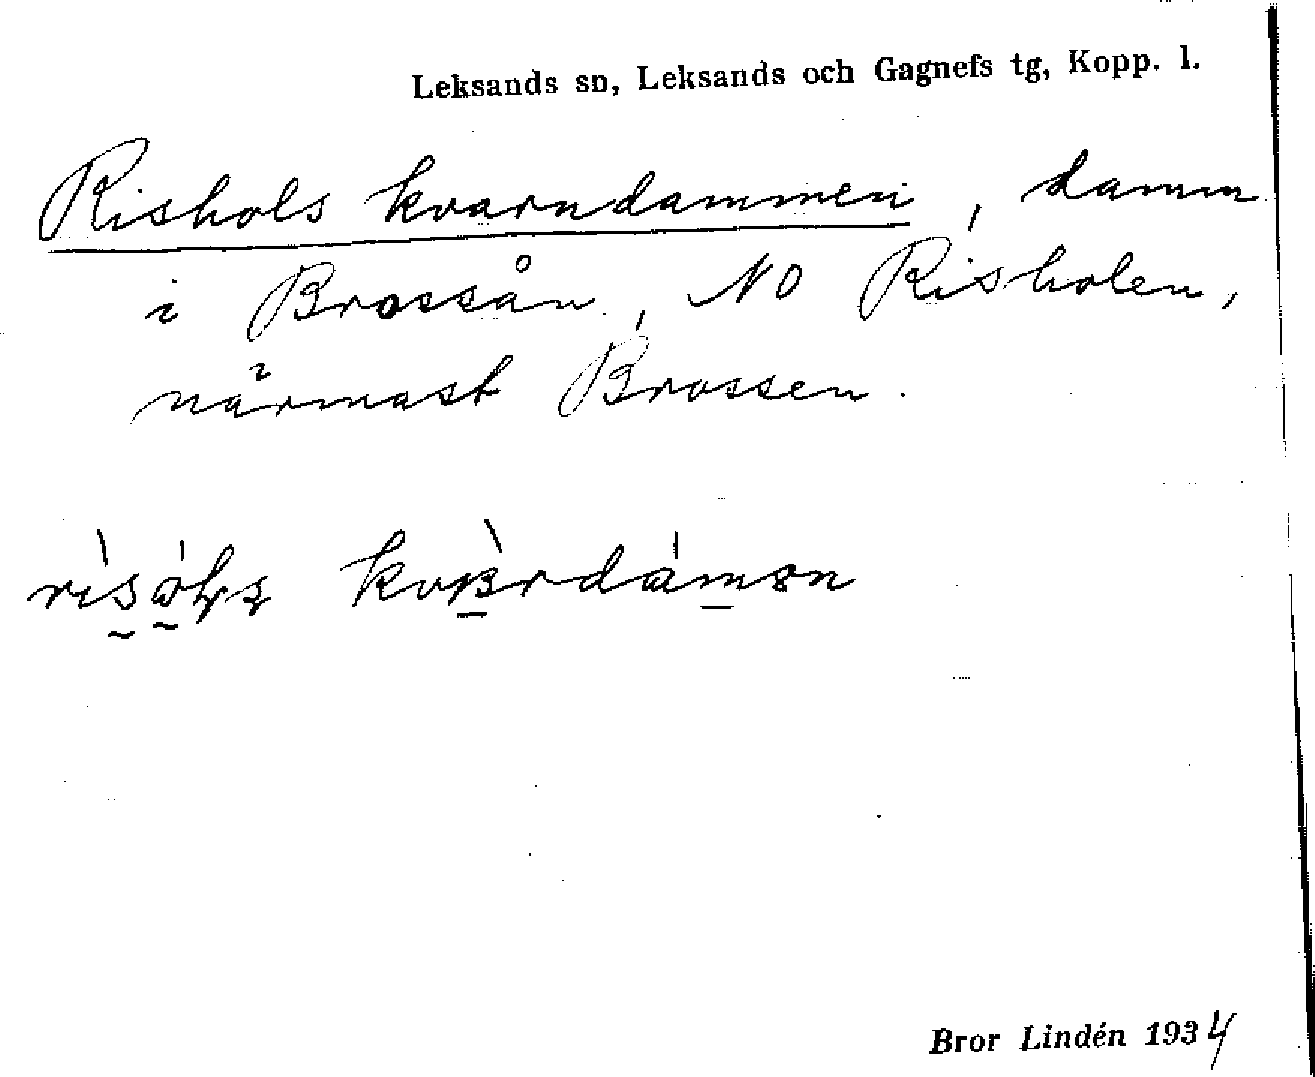 Leksands sn, Leksands och Gagnefs tg, Kopp. l.
Rishols kvarndammen, damm
i Brossån, NO Risholen,
närmast Brossen.
Bror Lindén 1934